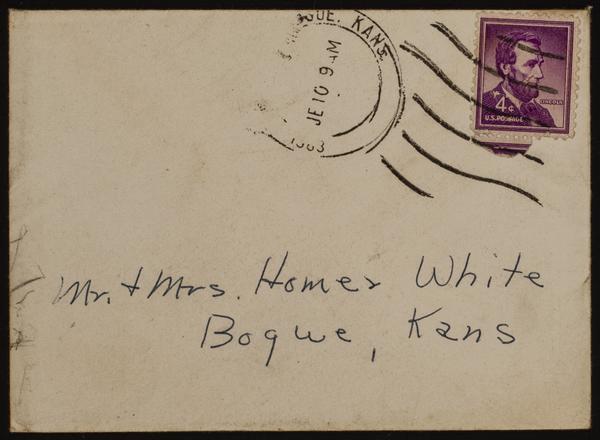 OUE, KANS
JE 10 9 AM
1963
LINCOLN
4¢
U.S. POSTAGE
Mr. + Mrs. Homer White
Bogue, Kans